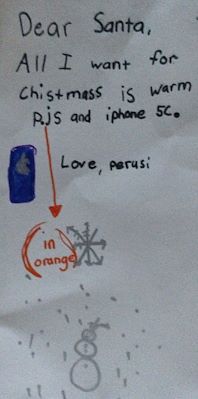 Dear Santa,
All I want for
chistmass is warm
pjs and iphone 5c.
Love, perusi
in
orange